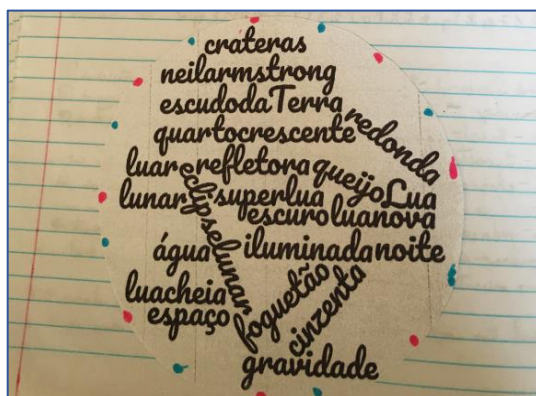 crateras
neilarmstrong
escudodaTerra
redonda
quartocrescente
luar refletora queijo Lua
lunar superlua
eclipselunar
escuro luanova
água iluminada noite
luacheia
espaço
foguetão
cinzenta
gravidade